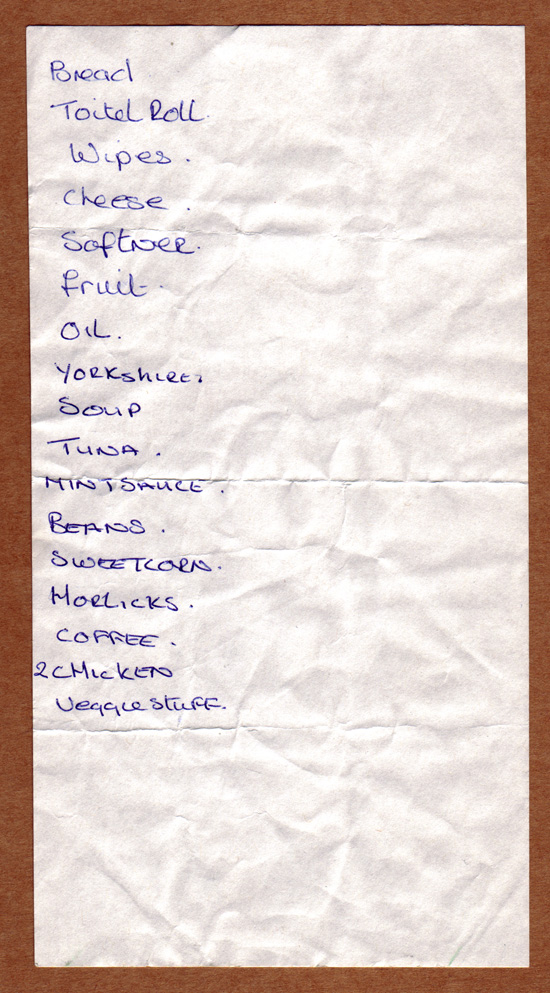 Bread
Toitel Roll.
Wipes.
Cheese.
Softner.
Fruit.
OIL.
YORKShIRE.
Soup
TUNA.
MINTSAUCE.
BEANS.
SWEETCORN.
HORLICKS.
COFFEE.
2CHICKEN
Veggie Stuff.